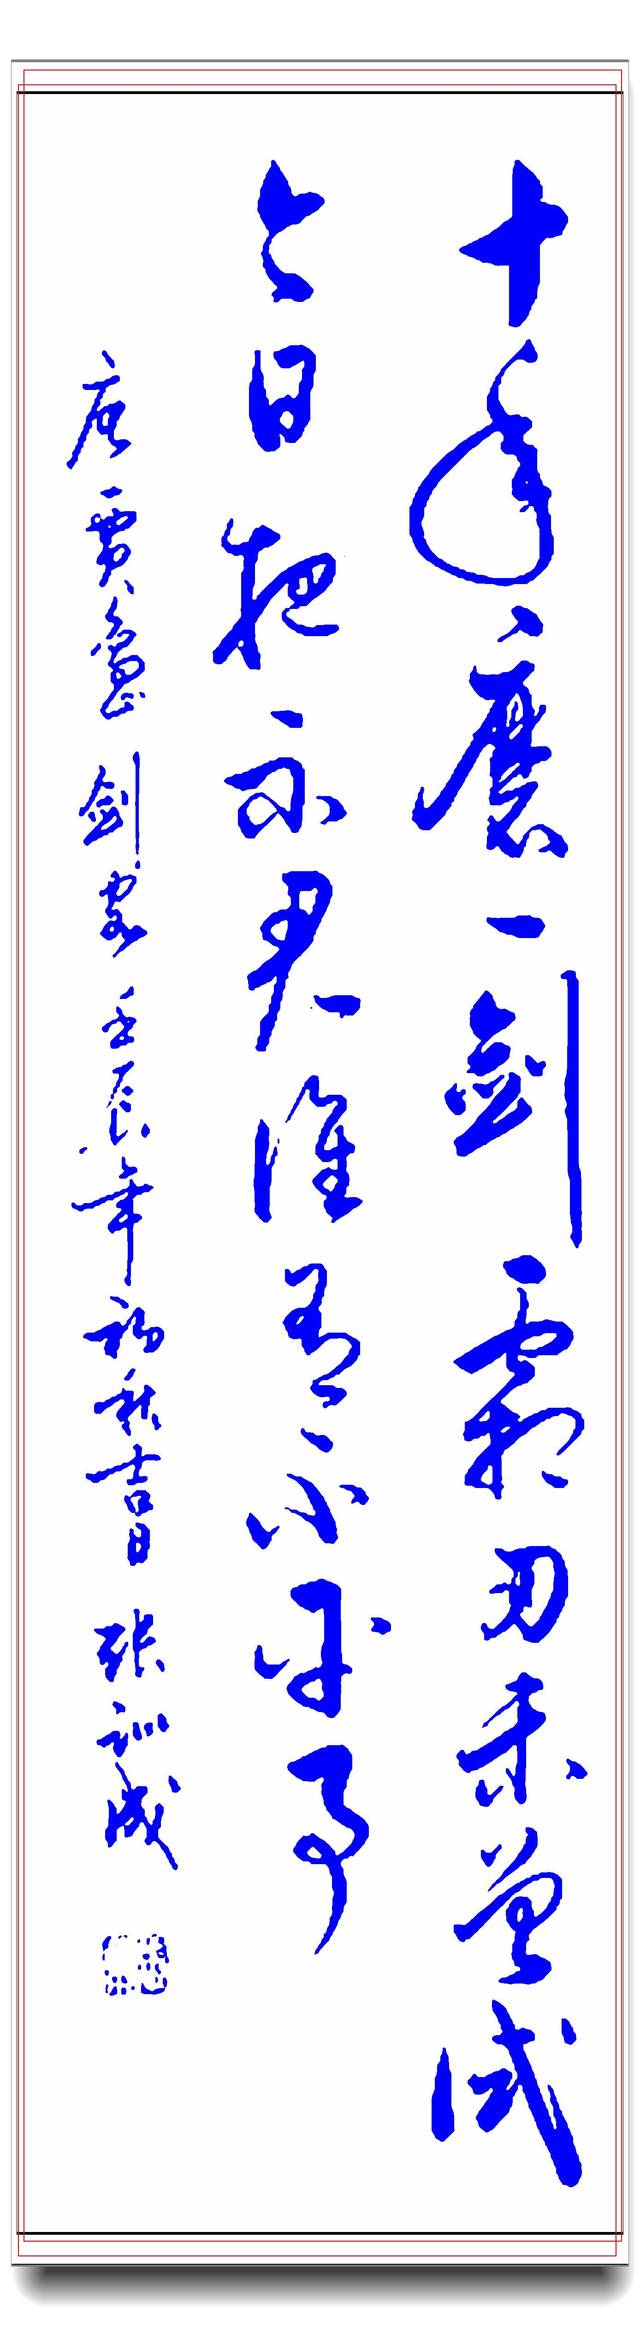 十年磨一剑霜刃未曾试
今日把示君谁有不平事
唐贾岛剑客壬辰年初秋吉日张训成